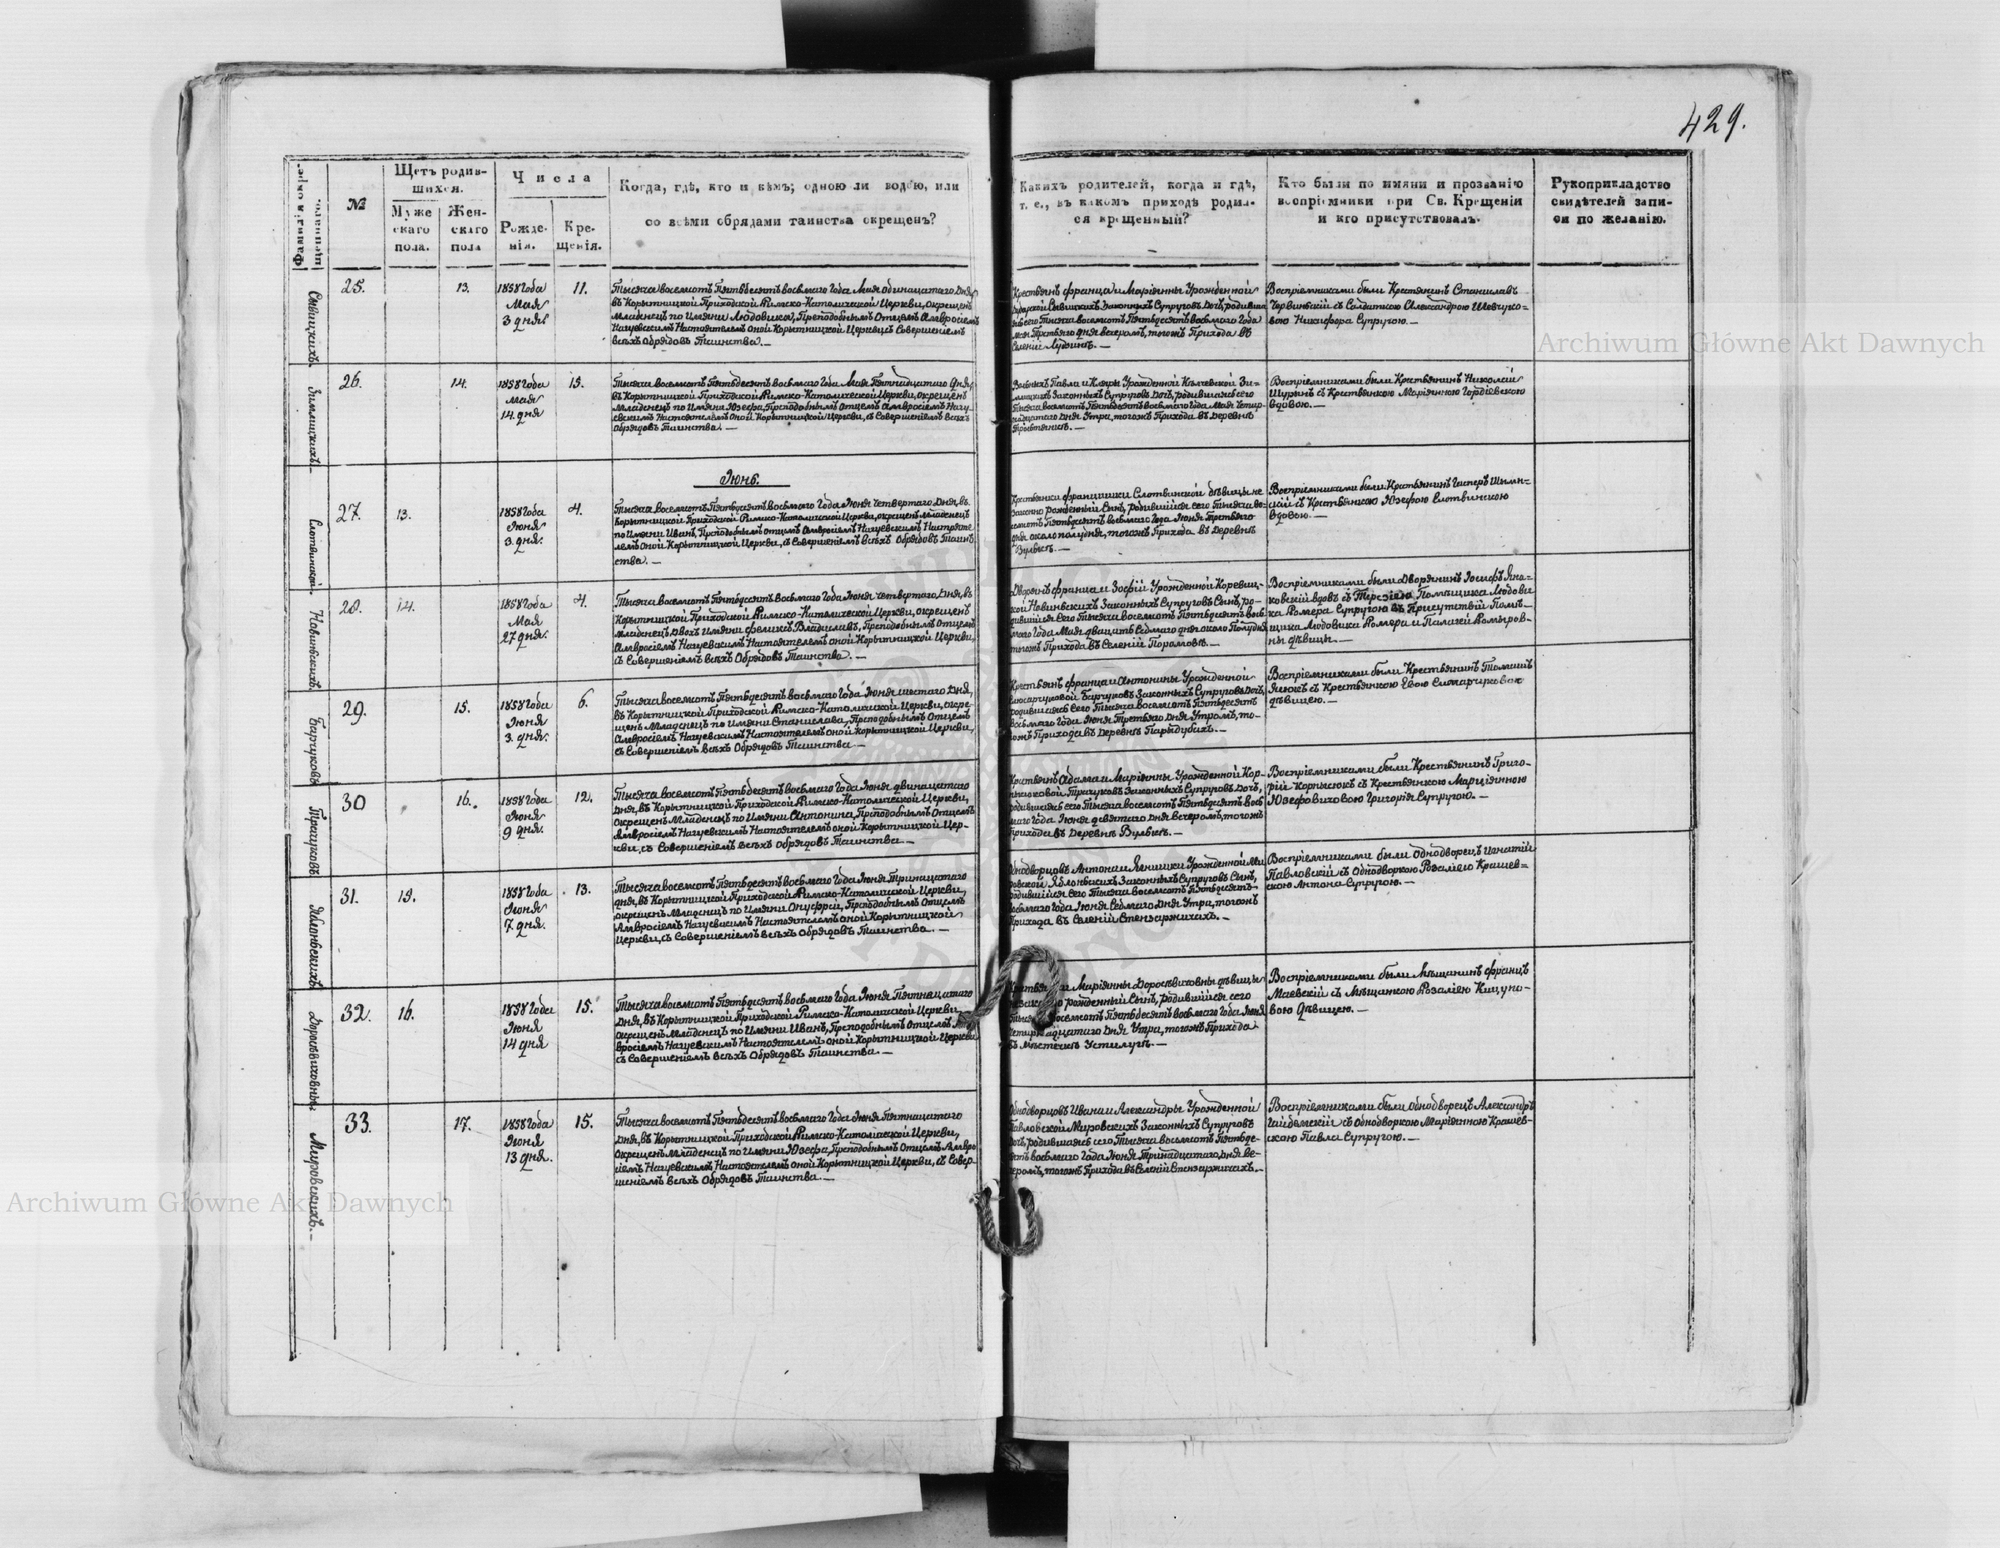 429.
Фамилія окре-
щеннаго.
№
Щетъ родив-
шихся.
Муже
скаго
пола.
Жен-
скаго
пола
Числа
Рожде-
нія.
Кре-
щенія.
Когда, гдѣ, кто и кѣмъ; одною ли водою, или
со всѣми обрядами таинства окрещенъ?
Какихъ родителей, когда и гдѣ,
т. е., въ какомъ приходѣ родил-
ся крещенный?
Кто были по имяни и прозванію
воспріемники при Св. Крещеніи
и кто присутствовалъ.
Рукоприкладство
свидѣтелей запи-
си по желанію.
25.
13.
1858 года
Мая
3 дня
11.
Тысяча восемотъ Пятьдесятъ восьмаго Года Мая одинацатаго Дня
въ Корытницкой Приходской Римско-Католической Церкви, окрещенъ
Младенецъ по Имяни Людовика, Преподобнымъ Отцемъ Амвросіемъ
Нагуевскимъ Настоятелемъ оной Корытницкой Церкви съ Совершеніемъ
всѣхъ Обрядовъ Таинства. —
Крестьянъ Франца и Маріянны Урожденной
Законныхъ Супруговъ Дочь, родивша
яся сего Тысяча восемотъ Пятьдесятъ восьмаго Года
Мая Третьяго дня вечеромъ, тогожъ Прихода въ
Селеніи
Воспріемниками были Крестьянинъ Станиславъ
Червинскій съ Солдаткою Александрою Шевчуко-
вою Никифора Супругою. —
Зимницкихъ. —
26.
14.
1858 года
Мая
14 дня
15.
Тысяча восемотъ Пятьдесятъ восьмаго Года Мая Пятнадцатаго Дня,
въ Корытницкой Приходской Римско-Католической Церкви, окрещенъ
Младенецъ по Имяни Юзефа, Преподобнымъ Отцемъ Амвросіемъ Нагу-
евскимъ Настоятелемъ оной Корытницкой Церкви, съ Совершеніемъ всѣхъ
Обрядовъ Таинства. —
Павла и Клары Урожденной Зи-
мницкихъ Законныхъ Супруговъ Дочь, родившаяся сего
Тысяча восемотъ Пятьдесятъ восьмаго Года Мая Четыр-
надцатаго Дня Утра, тогожъ Прихода въ Деревнѣ
Воспріемниками были Крестьянинъ Николай
Щуринъ съ Крестьянкою Маріянною Гордіевскою
вдовою. —
Іюнь.
Слотвинской.
27.
13.
1858 года
Іюня
3 дня.
4.
Тысяча восемотъ Пятьдесятъ восьмаго Года Іюня четвертаго Дня, въ
Корытницкой Приходской Римско-Католической Церкви, окрещенъ Младенецъ
по Имяни Иванъ, Преподобнымъ отцемъ Амвросіемъ Нагуевскимъ Настояте-
лемъ оной Корытницкой Церкви, съ Совершеніемъ всѣхъ Обрядовъ Таин-
ства. —
Крестьянки Францишки Слотвинской дѣвицы не
законно рожденный Сынъ, родившійся сего Тысяча во-
семотъ Пятьдесятъ восьмаго Года Іюня Третьяго
дня около полудня, тогожъ Прихода въ Деревнѣ
Вулькѣ. —
Воспріемниками были Крестьянинъ Гасперъ Шымн-
скій съ Крестьянкою Юзефою Слотвинскою
вдовою. —
Новинскихъ
28.
14.
1858 года
Мая
27 дня.
4.
Тысяча восемотъ Пятьдесятъ восьмаго Года Іюня четвертаго, Дня, въ
Корытницкой Приходской Римско-Католической Церкви, окрещенъ
Младенецъ двохъ Имяни Феликсъ Владиславъ, Преподобнымъ Отцемъ
Амвросіемъ Нагуевскимъ Настоятелемъ оной Корытницкой Церкви,
съ Совершеніемъ всѣхъ Обрядовъ Таинства. —
Дворянъ Франца и Зофіи Урожденной Коревиц-
кой Новинскихъ Законныхъ Супруговъ Сынъ, ро-
дившійся Сего Тысяча восемотъ Пятьдесятъ вось-
маго Года Мая двацать Седмаго дня около Полудня
тогожъ Прихода въ Селеніи Поромовѣ. —
Воспріемниками были Дворянинъ Іосифъ Яна-
ковскій вдовъ съ Терезіею Помѣщика Людови
ка Ромера Супругою въ Присутствіи Помѣ-
щика Людовика Ромера и Палагеи Ромыров-
ны дѣвицы. —
Барчуковъ
29.
15.
1858 Года
Іюня
3 дня.
6.
Тысяча восемотъ Пятьдесятъ восьмаго Года Іюня шестаго Дня,
въ Корытницкой Приходской Римско-Католической Церкви, окре-
щенъ Младенецъ по Имяни Станислава, Преподобнымъ Отцемъ
Амвросіемъ Нагуевскимъ Настоятелемъ оной Корытницкой Церкви,
съ Совершеніемъ всѣхъ Обрядовъ Таинства. —
Крестьянъ Франца и Антонины Урожденной
Слюсарчуковой, Барчуковъ Законныхъ Супруговъ Дочь,
родившаяся Сего Тысяча восемотъ Пятьдесятъ
восьмаго Года Іюня Третьяго Дня Утромъ, то-
гожъ Прихода въ Деревнѣ Парыдубахъ. —
Воспріемниками были Крестьянинъ Томашъ
съ Крестьянкою Евою
дѣвицею. —
Трачуковъ
30
16.
1858 года
Іюня
9 дня.
12.
Тысяча восемотъ Пятьдесятъ восьмаго Года Іюня двинацатаго
Дня, въ Корытницкой Приходской Римско-Католической Церкви,
Окрещенъ Младенецъ по Имяни Антонина, Преподобнымъ Отцемъ
Амвросіемъ Нагуевскимъ Настоятелемъ оной Корытницкой Цер-
кви, съ Совершеніемъ всѣхъ Обрядовъ Таинства. —
Крестьянъ Адама и Маріянны Урожденной Кор-
нилюковой, Трачуковъ Законныхъ Супруговъ Дочь,
родившаяся сего Тысяча восемотъ Пятьдесятъ вось
маго Года Іюня девятаго дня вечеромъ, тогожъ
Прихода въ Деревнѣ Вулькѣ. —
Воспріемниками были Крестьянинъ Григо-
рій Карпысюкъ съ Крестьянкою Марціянною
Юзефовиховою Григорія Супругою. —
Яблоньскихъ
31.
15.
1858 года
Іюня
7 дня.
13.
Тысяча восемотъ Пятьдесятъ восьмаго Года Іюня Тринацатаго
дня, въ Корытницкой Приходской Римско-Католической Церкви,
окрещенъ Младенецъ по Имяни Онуфрій, Преподобнымъ Отцемъ
Амвросіемъ Нагуевскимъ Настоятелемъ оной Корытницкой
Церкви, съ Совершеніемъ всѣхъ Обрядовъ Таинства. —
Однодворцовъ Антона и Урожденной Ми-
ровской Яблонскихъ Законныхъ Супруговъ Сынъ,
родившійся Сего Тысяча восемотъ Пятьдесятъ
восьмаго Года Іюня Седмаго Дня Утра, тогожъ
Прихода въ Селеніи Стензаржихахъ. —
Воспріемниками были Однодворецъ Игнатій
Павловскій съ Однодворкою Розаліею Крашев-
скою Антона Супругою. —
Доросѣвиховны
32.
16.
1858 года
Іюня
14 дня
15.
Тысяча восемотъ Пятьдесятъ восьмаго Года Іюня Пятнацатаго
Дня, въ Корытницкой Приходской Римско-Католической Церкви
окрещенъ Младенецъ по Имяни Иванъ, Преподобнымъ Отцемъ Ам
вросіемъ Нагуевскимъ Настоятелемъ оной Корытницкой Церкви
съ Совершеніемъ всѣхъ Обрядовъ Таинства. —
Маріянны Доросѣвиховны дѣвицы
рожденный Сынъ, родившійся сего
восемотъ Пятьдесятъ восьмаго Года Іюня
Четырнадцатаго Дня Утра, тогожъ Прихода
въ Мѣстечкѣ Устилугѣ. —
Воспріемниками были Мѣщанинъ Францъ
Маевскій съ Мѣщанкою Розаліею
вою Дѣвицею. —
Мировскихъ. —
33.
17.
1858 года
Іюня
13 дня.
15.
Тысяча восемотъ Пятьдесятъ восьмаго Года Іюня Пятнацатаго
Дня, въ Корытницкой Приходской Римско-Католической Церкви,
Окрещенъ Младенецъ по Имяни Юзефа, Преподобнымъ Отцемъ Амвро
сіемъ Нагуевскимъ Настоятелемъ оной Корытницкой Церкви, съ Совер-
шеніемъ всѣхъ Обрядовъ Таинства. —
Однодворцовъ Ивана и Александры Урожденной
Павловской Мировскихъ Законныхъ Супруговъ
Дочь, родившаяся сего Тысяча восемотъ Пятьде-
сятъ восьмаго Года Іюня Тринадцатаго, Дня ве-
черомъ, тогожъ Прихода въ Селеніи Стензаржихахъ. —
Воспріемниками были Однодворецъ Александръ
Гайдемскій съ Однодворкою Маріянною Крашев-
скою Павла Супругою. —
Archiwum Główne Akt Dawnych
Archiwum Główne Akt Dawnych